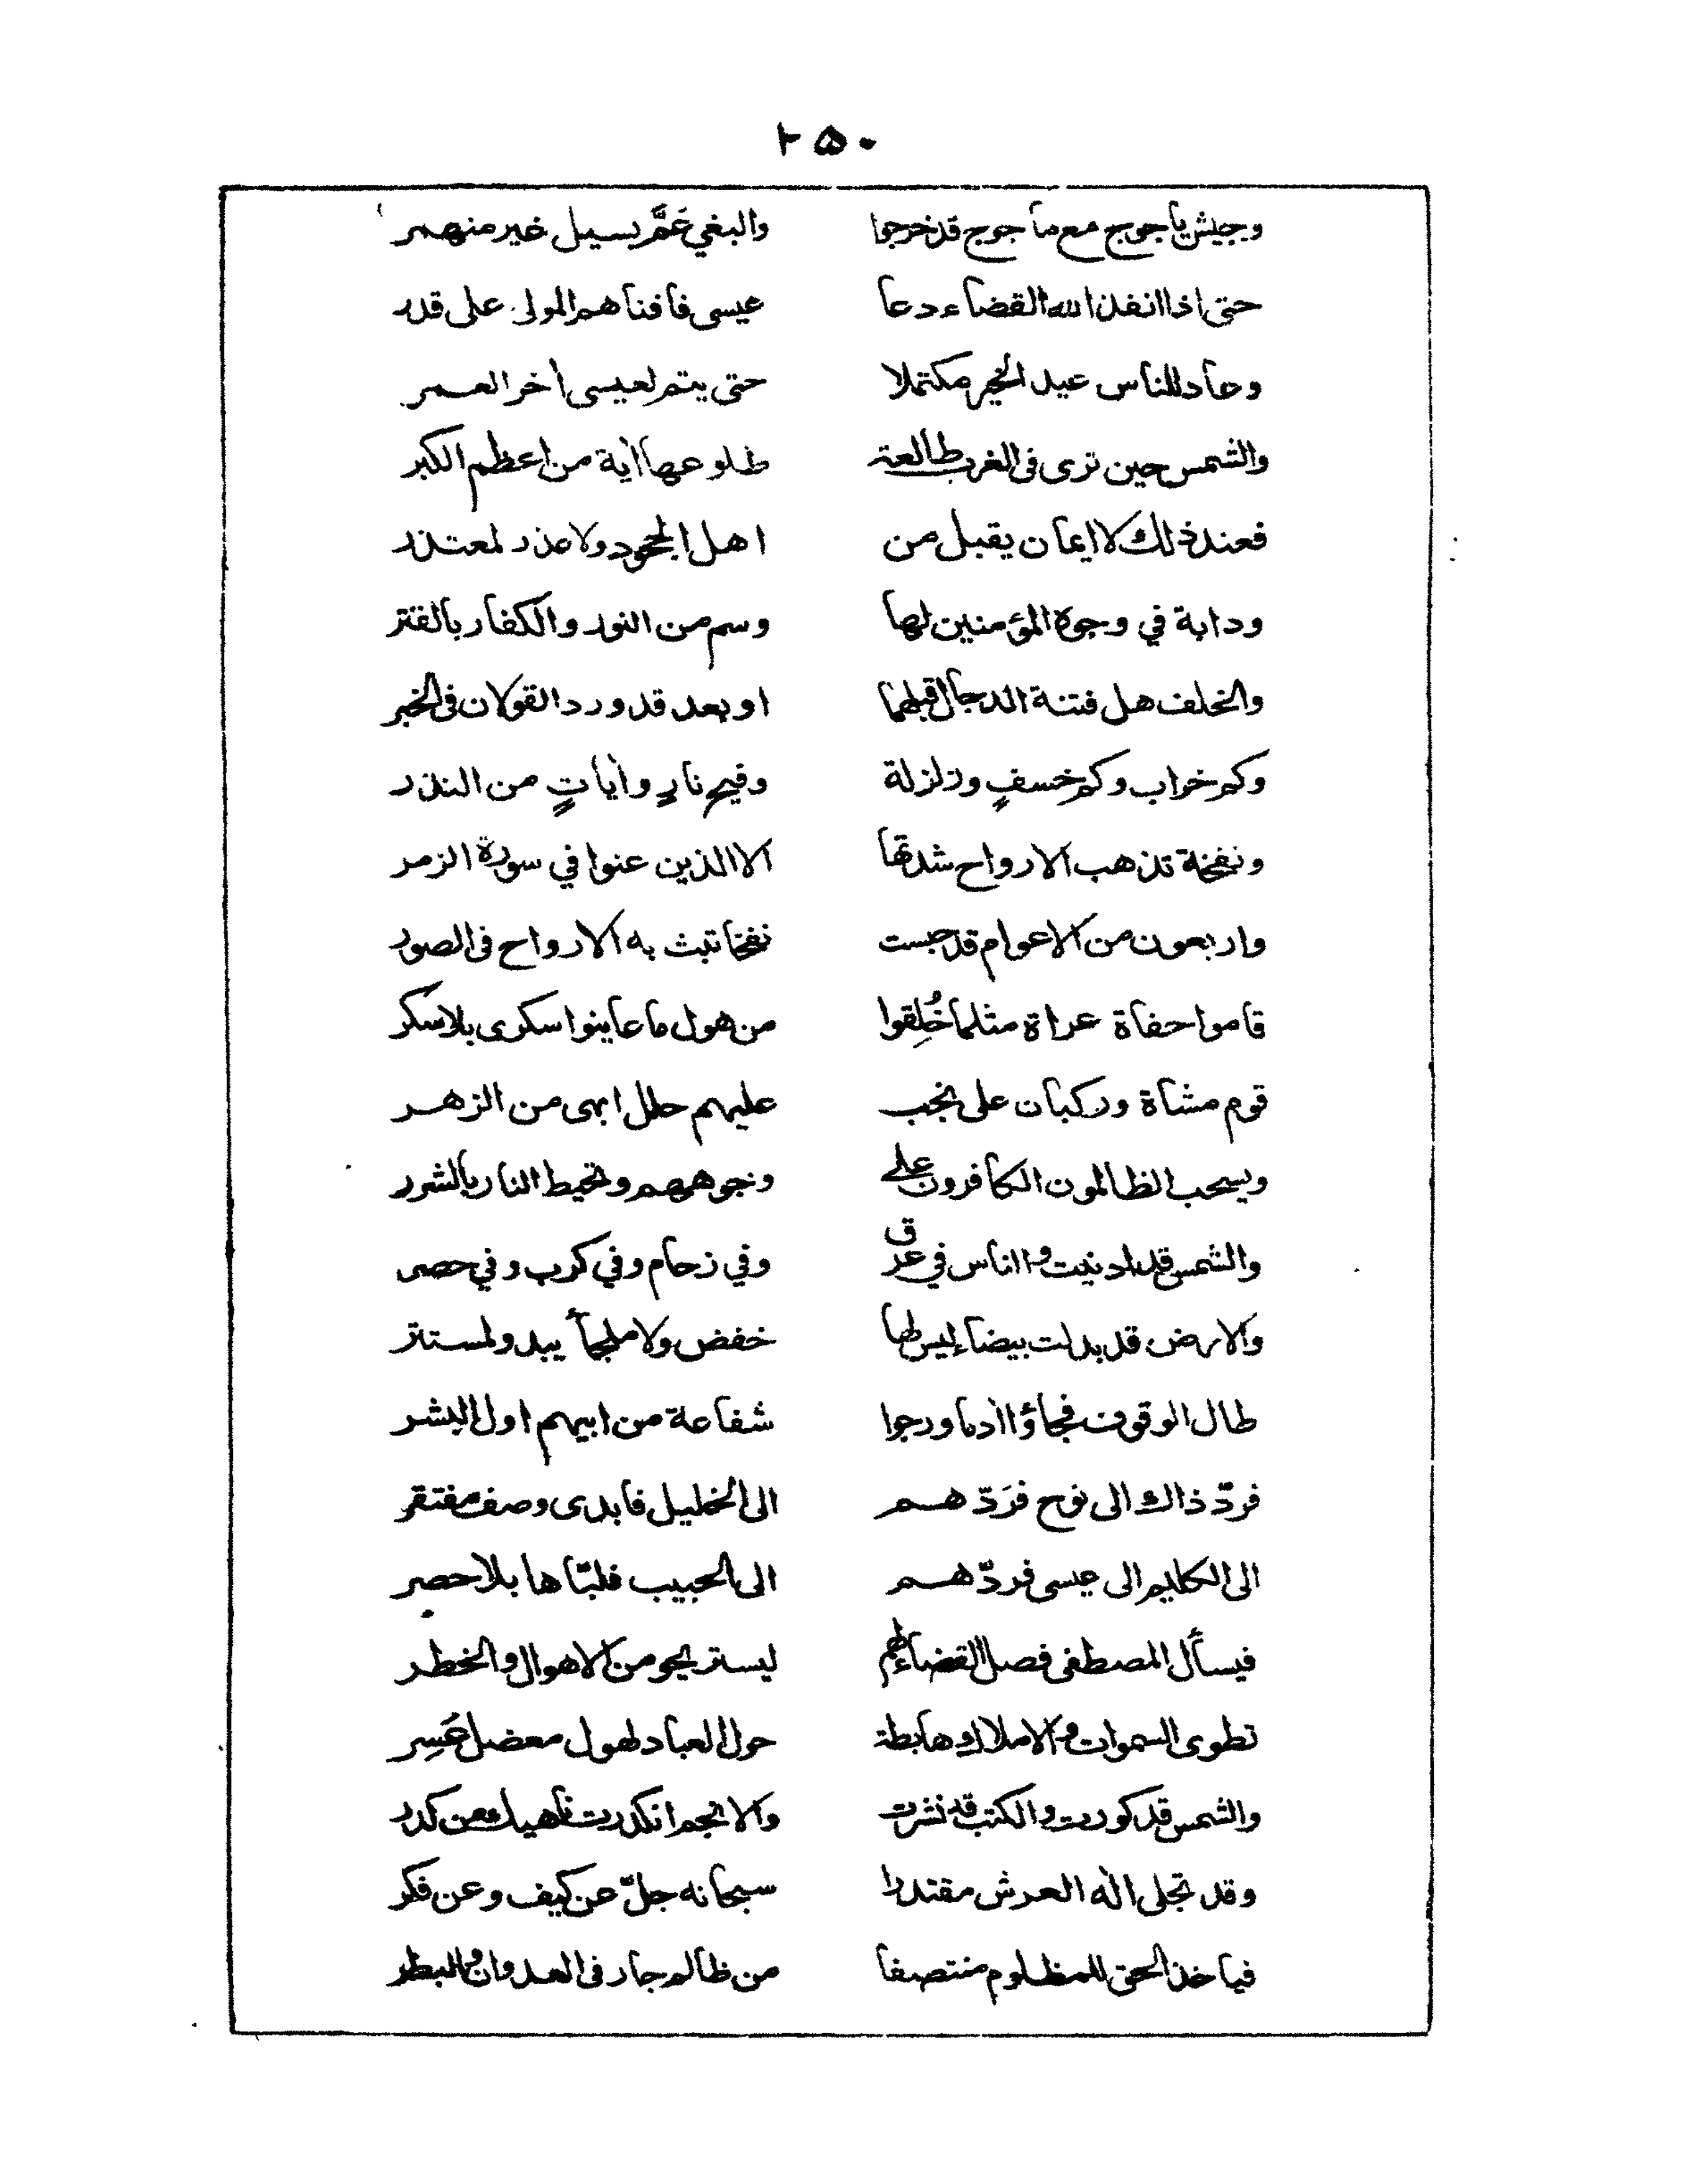 ٢٥٠
وجيش يأجوج مع مأجوج قد خرجوا والبغي عَمَّ بسيل خير منهمر
حتى اذا انفذ الله القضاء دعا عيسى فأفناهم المولى على قدر
وعاد للناس عيد الخير مكتملا حتى يتم لعيسى أخر العمر
والشمس حين ترى في الغرب طالعة طلوعها أية من اعظم الكبر
فعند ذلك لا ايمان يقبل من اهل الجحود ولا عذر لمعتذر
ودابة في وجوه المؤمنين لها وسم من النور والكفار بالقتر
والخلف هل فتنة الدجال قبلهما او بعد قد ورد القولان في الخبر
وكم خراب وكم خسفٍ وزلزلة وفيح نارٍ وأياتٍ من النذر
ونفخة تذهب الارواح شدتها الا الذين عنوا في سورة الزمر
واربعون من الاعوام قد حبست نفخا تبث به الارواح في الصور
قاموا حفاة عراة مثلما خُلِقوا من هول ما عاينوا سكرى بلا سكر
قوم مشاة وركبان على نجب عليهم حلل ابهى من الزهر
ويسحب الظالمون الكافرون على وجوههم وتحيط النار بالشرر
والشمس قد ادنيت والناس في عرق وفي زحام وفي كرب وفي حصر
والارض قد بدلت بيضاء ليس لها خفض ولا ملجأ يبدو لمستتر
طال الوقوف فجاؤا أدما ورجوا شفاعة من ابيهم اول البشر
فردّ ذاك الى نوح فرَدّهم الى الخليل فابدى وصف مفتقر
الى الكليم الى عيسى فردّهم الى الحبيب فلبّاها بلا حصر
فيسأل المصطفى فصل القضاء لهم ليستريحو من الاهوال والخطر
تطوى السموات والاملاك هابطة حول العباد لهول معضل عَسِر
والشمس قد كورت والكتب قد نشرت والانجم انكدرت ناهيك عن كدر
وقد تجلى اله العرش مقتدرا سبحانه جلّ عن كيف وعن فكر
فيأخذ الحق للمظلوم منتصفا من ظالم جار في العدوان والبطر